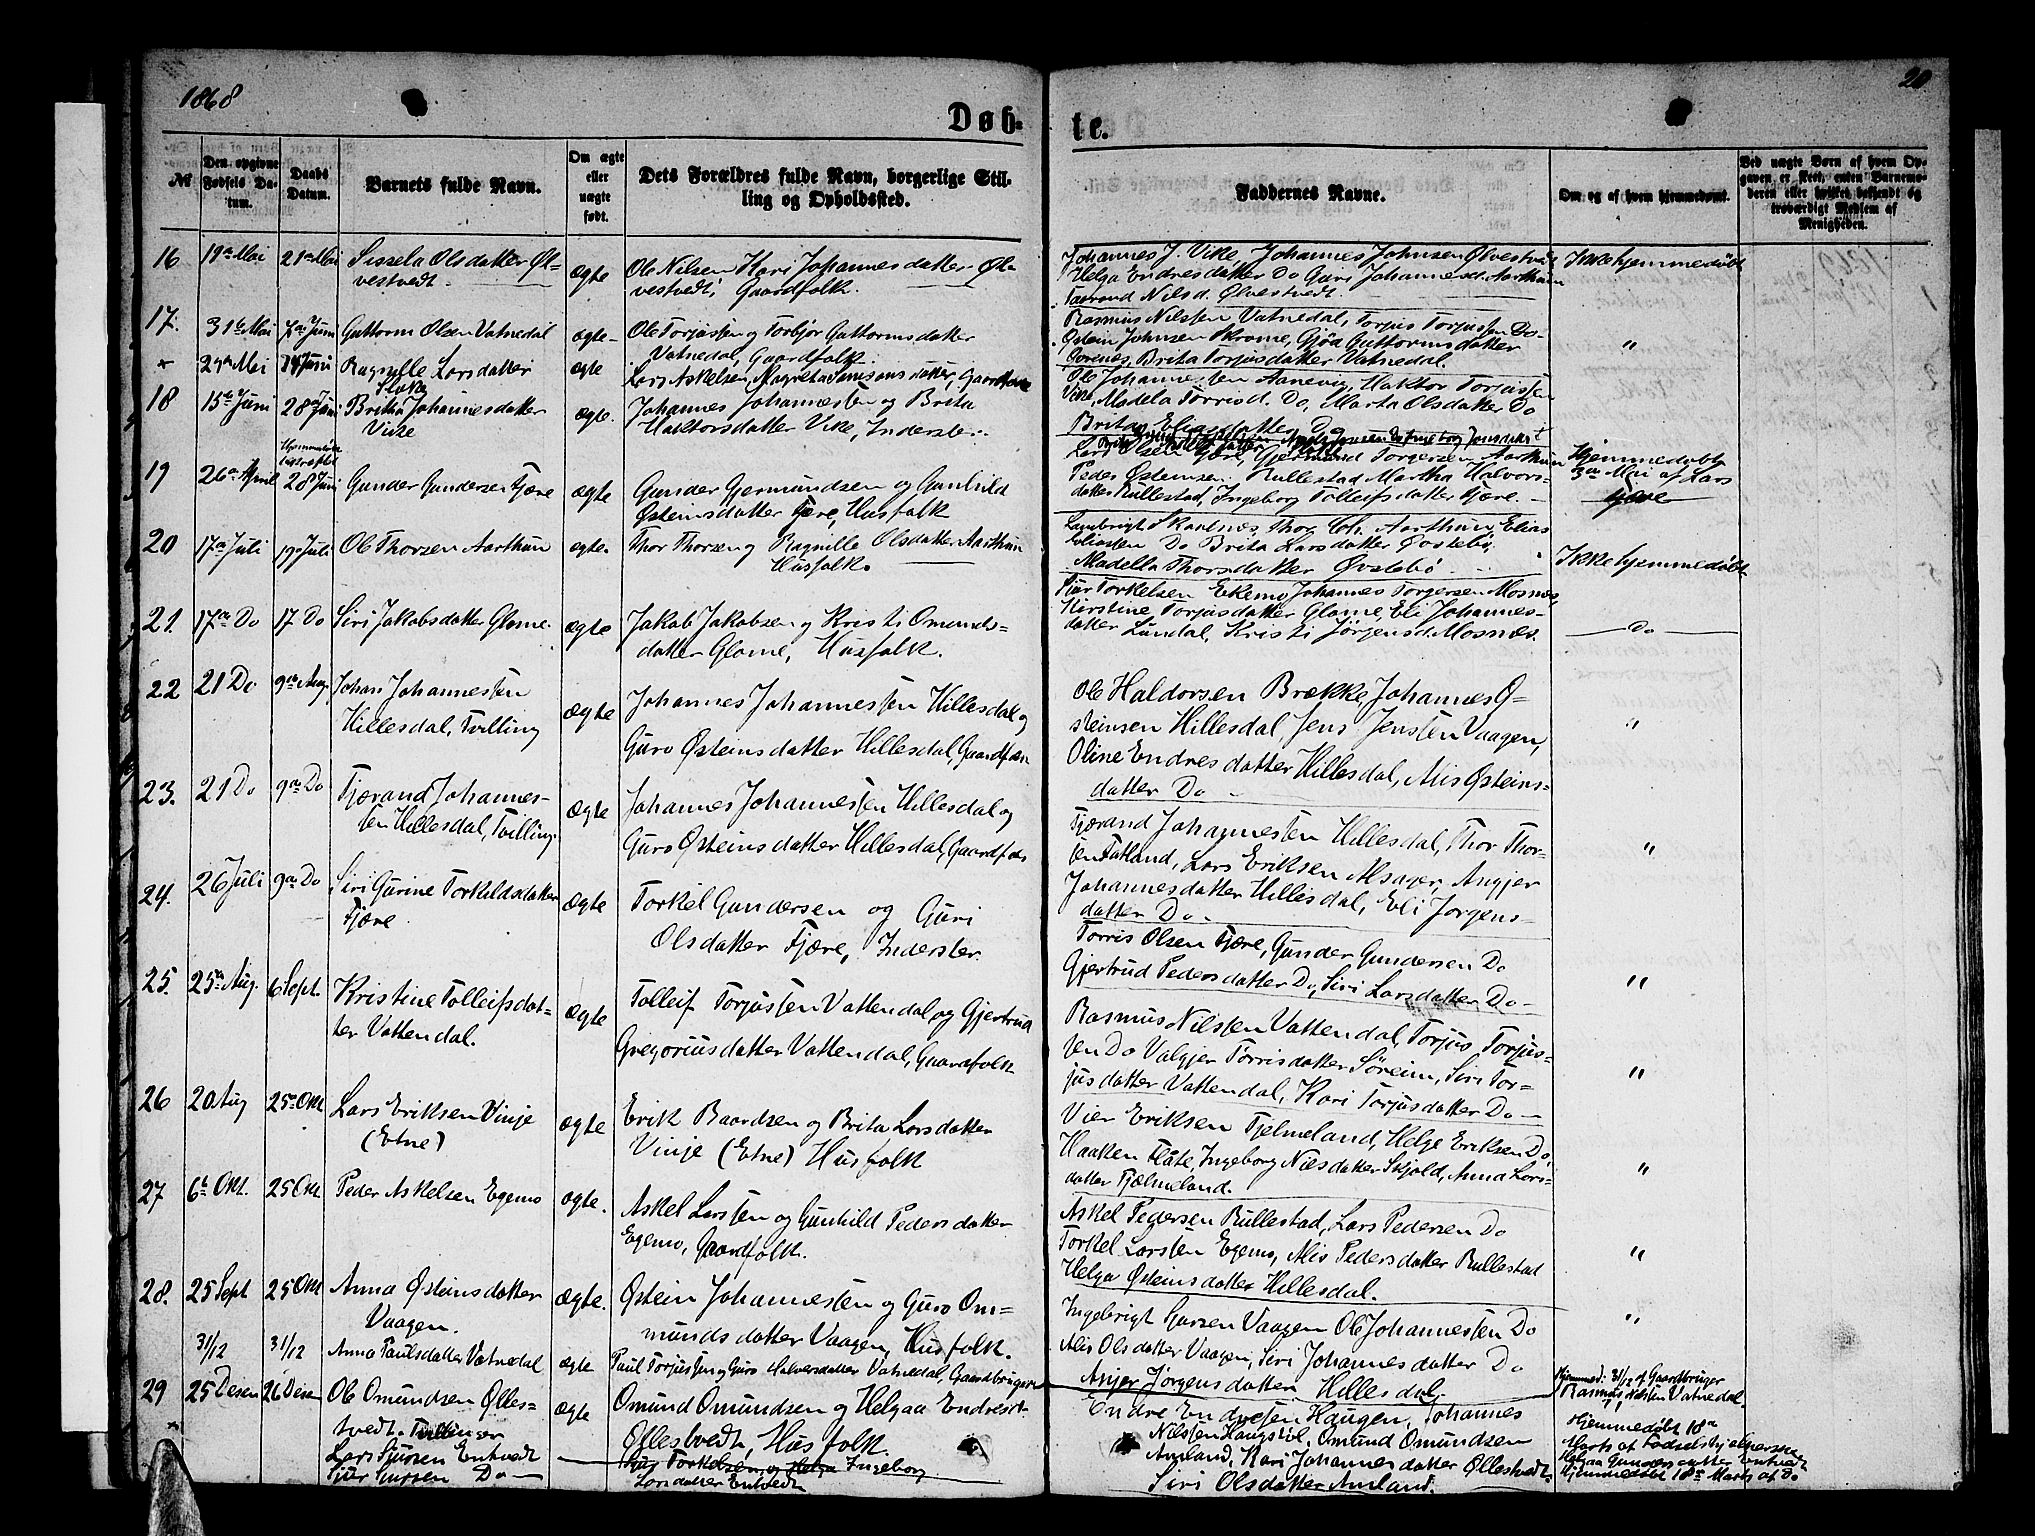 1868
20
Døb-
te.
№
Den opgivne Fødsels Datum.
Daabs Datum.
Barnets fulde Navn.
Om ægte eller uægte født.
Dets Forældres fulde Navn, borgerlige Stilling og Opholdssted.
Faddernes Navne.
Om og af hvem hjemmedøbt.
Ved uægte Børn af hvem Opgaven er skeet, enten Barnemoderen eller hvilket bekjendt og troværdigt Medlem af Menigheden.
16 19de Mai 21de Mai Sissela Olsdatter Øl-
vestvedt.
ægte
Ole Nilsen Kari Johannesdatter Øl-
vestvedt, Gaardfolk.
Johannes J. Vike, Johannes Johnsen Ølvestvedt
Helga Endresdatter Do Guri Johannesd. Aarthun
Nilsd. Ølvestvedt.
Ikke hjemmedøbt
17. 31te Mai 7de Juni Guttorm Olsen Vatnedal
ægte
Ole Torjussen og Torbjør Guttormsdatter
Vatnedal, Gaardfolk.
Rasmus Nilssen Vatnedal, Torjus Torjussen Do
Østein Johnsen Gjøa Guttormsdatter
Brita Torjusdatter Vatnedal.
"
29de Mai 14 Juni Ragnille Larsdatter
Flaka
ægte
Lars Askelsen, Magreta Samsonsdatter, Gaardfolk
18 15de Juni 28de Juni Britha Johannesdatter
Vike
ægte.
Johannes Johannessen og Brita
Haktorsdatter Vike, Inderster.
Ole Johannessen Aanevig, Haktor Torjussen
Vike, Madela Torrisd. Do, Marta Olsdatter Do
Brita Eliasdatter Do
19 26de April 28 Juni Gunder Gundersen Fjære
ægte
Gunder Gjermundsen og Gunhild
Østeinsdatter Fjære, Husfolk
Lars Olsen Fjære, Gjermund Torgersen Aarthun
Peder Østeinsen Rullestad Martha Halvors-
datter Rullestad, Ingeborg Tolleifsdatter Fjære.
Hjemmedøbt
3de Mai af Lars
Fjære
20 17de Juli 19de Juli Ole Thorsen Aarthun
ægte.
Thor Thorsen og Ragnille Olsdatter Aarthun
Husfolk.
Lambrigt Skarlnes Thor Aarthun, Elias
Eliassen Do Brita Larsdatter Øvstebø,
Madella Thorsdatter Øvstebø
Ikke hjemmedøbt
21. 17de Do 17 Do Siri Jakobsdatter Glome.
ægte
Jakob Jakobsen og Kristi Omunds-
datter Glome, Husfolk.
Sjur Torkelsen Ekemo Johannes Torgersen Mosnes,
Kirstine Torjusdatter Glome, Eli Johannes-
datter Lundal, Kristi Jørgensd. Mosnæs.
Do
22 21 Do 9de Aug Johan Johannessen
Hillesdal, Tvilling
ægte
Johannes Johannessen Hillesdal og
Guro Østeinsdatter Hillesdal, Gaardfolk
Ole Haldorsen Brække, Johannes Ø-
steinsen Hillesdal, Jens Jenssen Vaagen,
Oline Endresdatter Hillesdal, Alis Østeins-
datter Do
"
23. 21 Do 9de Do Fjærand Johannes-
sen Hillesdal, Tvilling.
ægte
Johannes Johannessen Hillesdal og
Guro Østeinsdatter Hillesdal, Gaardfolk
Fjærand Johannessen Hillesdal, Thor Thor-
sen Fatland, Lars Eriksen Alsager, Angjer
Johannesdatter Hillesdal, Eli Jørgens-
datter Do.
"
24. 26 Juli 9de Do Siri Gurine Torkildsdatter
Fjære.
ægte
Torkel Gundersen og Guri
Olsdatter Fjære, Inderster.
Torris Olsen Fjære, Gunder Gundersen Do
Gjertrud Pedersdatter Do, Siri Larsdatter Do
"
25. 25de Aug. 6 Sept. Kristine Tolleifsdat-
ter Vattendal.
ægte
Tolleif Torjussen Vattendal og Gjertrud
Gregoriusdatter Vattendal, Gaardfolk
Rasmus Nilssen Vattendal, Torjus Torjus-
sen Do Valgjer Torrisdatter Søreim, Siri Tor-
jusdatter Vattendal, Kari Torjusdatter Do
"
26 20 Aug 25de Okt Lars Eriksen Vinje
(Etne)
ægte
Erik Baardsen og Brita Larsdatter
Vinje (Etne) Husfolk
Vier Eriksen Fjelmeland, Helge Eriksen Do,
Haaken Flåte, Ingeborg Nilsdatter Skjold, Anna Lars-
datter Fjælmeland.
"
27 6te Okt. 25 Okt Peder Askelsen Egemo
ægte.
Askel Larssen og Gunhild Pedersdatter
Egemo, Gaardfolk.
Askel Pedersen Rullestad, Lars Pedersen Do
Torkel Larssen Egemo, Alis Pedersdatter Rullestad
Helga Østeinsdatter Hillesdal.
"
28. 25 Sept 25 Okt Anna Østeinsdatter
Vaagen.
ægte.
Østein Johannessen og Guro Om-
mundsdatter Vaagen, Husfolk.
Ingebrigt Sjursen Vaagen Ole Johannessen Do
Alis Olsdatter Vaagen, Siri Johannesdatter Do
Anjer Jørgensdatter Hillesdal.
"
31/12 31/12 Anna Paulsdatter Vatnedal
ægte
Paul Torjussen og Guro Halversdatter Vatnedal, Gaardbruger
Hjemmed: 31/12 af Gaardbruger
Rasmus Nilssen Vatnedal
29 25 Desem 26 Desem Ole Omundsen Ølles-
tvedt.
ægte
Omund Omundsen og Helgaa Endresdt.
Øllestvedt, Husfolk.
Endre Endresen Haugen, Johannes
Nilssen Haugstøl, Omund Omundsen
Amland, Kari Johannesdatter Øllestvedt.
Siri Olsdatter Amland.
Tvillinger
Lars Sjursen Entvedt
Sjur Sjursen Do
Sjur Torkelsen og Helga Ingeborg
Larsdatter Entvedt
Hjemmedøbt 18de
Marts af Fødselshjælperske
Helgaa Gundersdatter Entvedt
Hjemmedøbt 18de Marts af Do